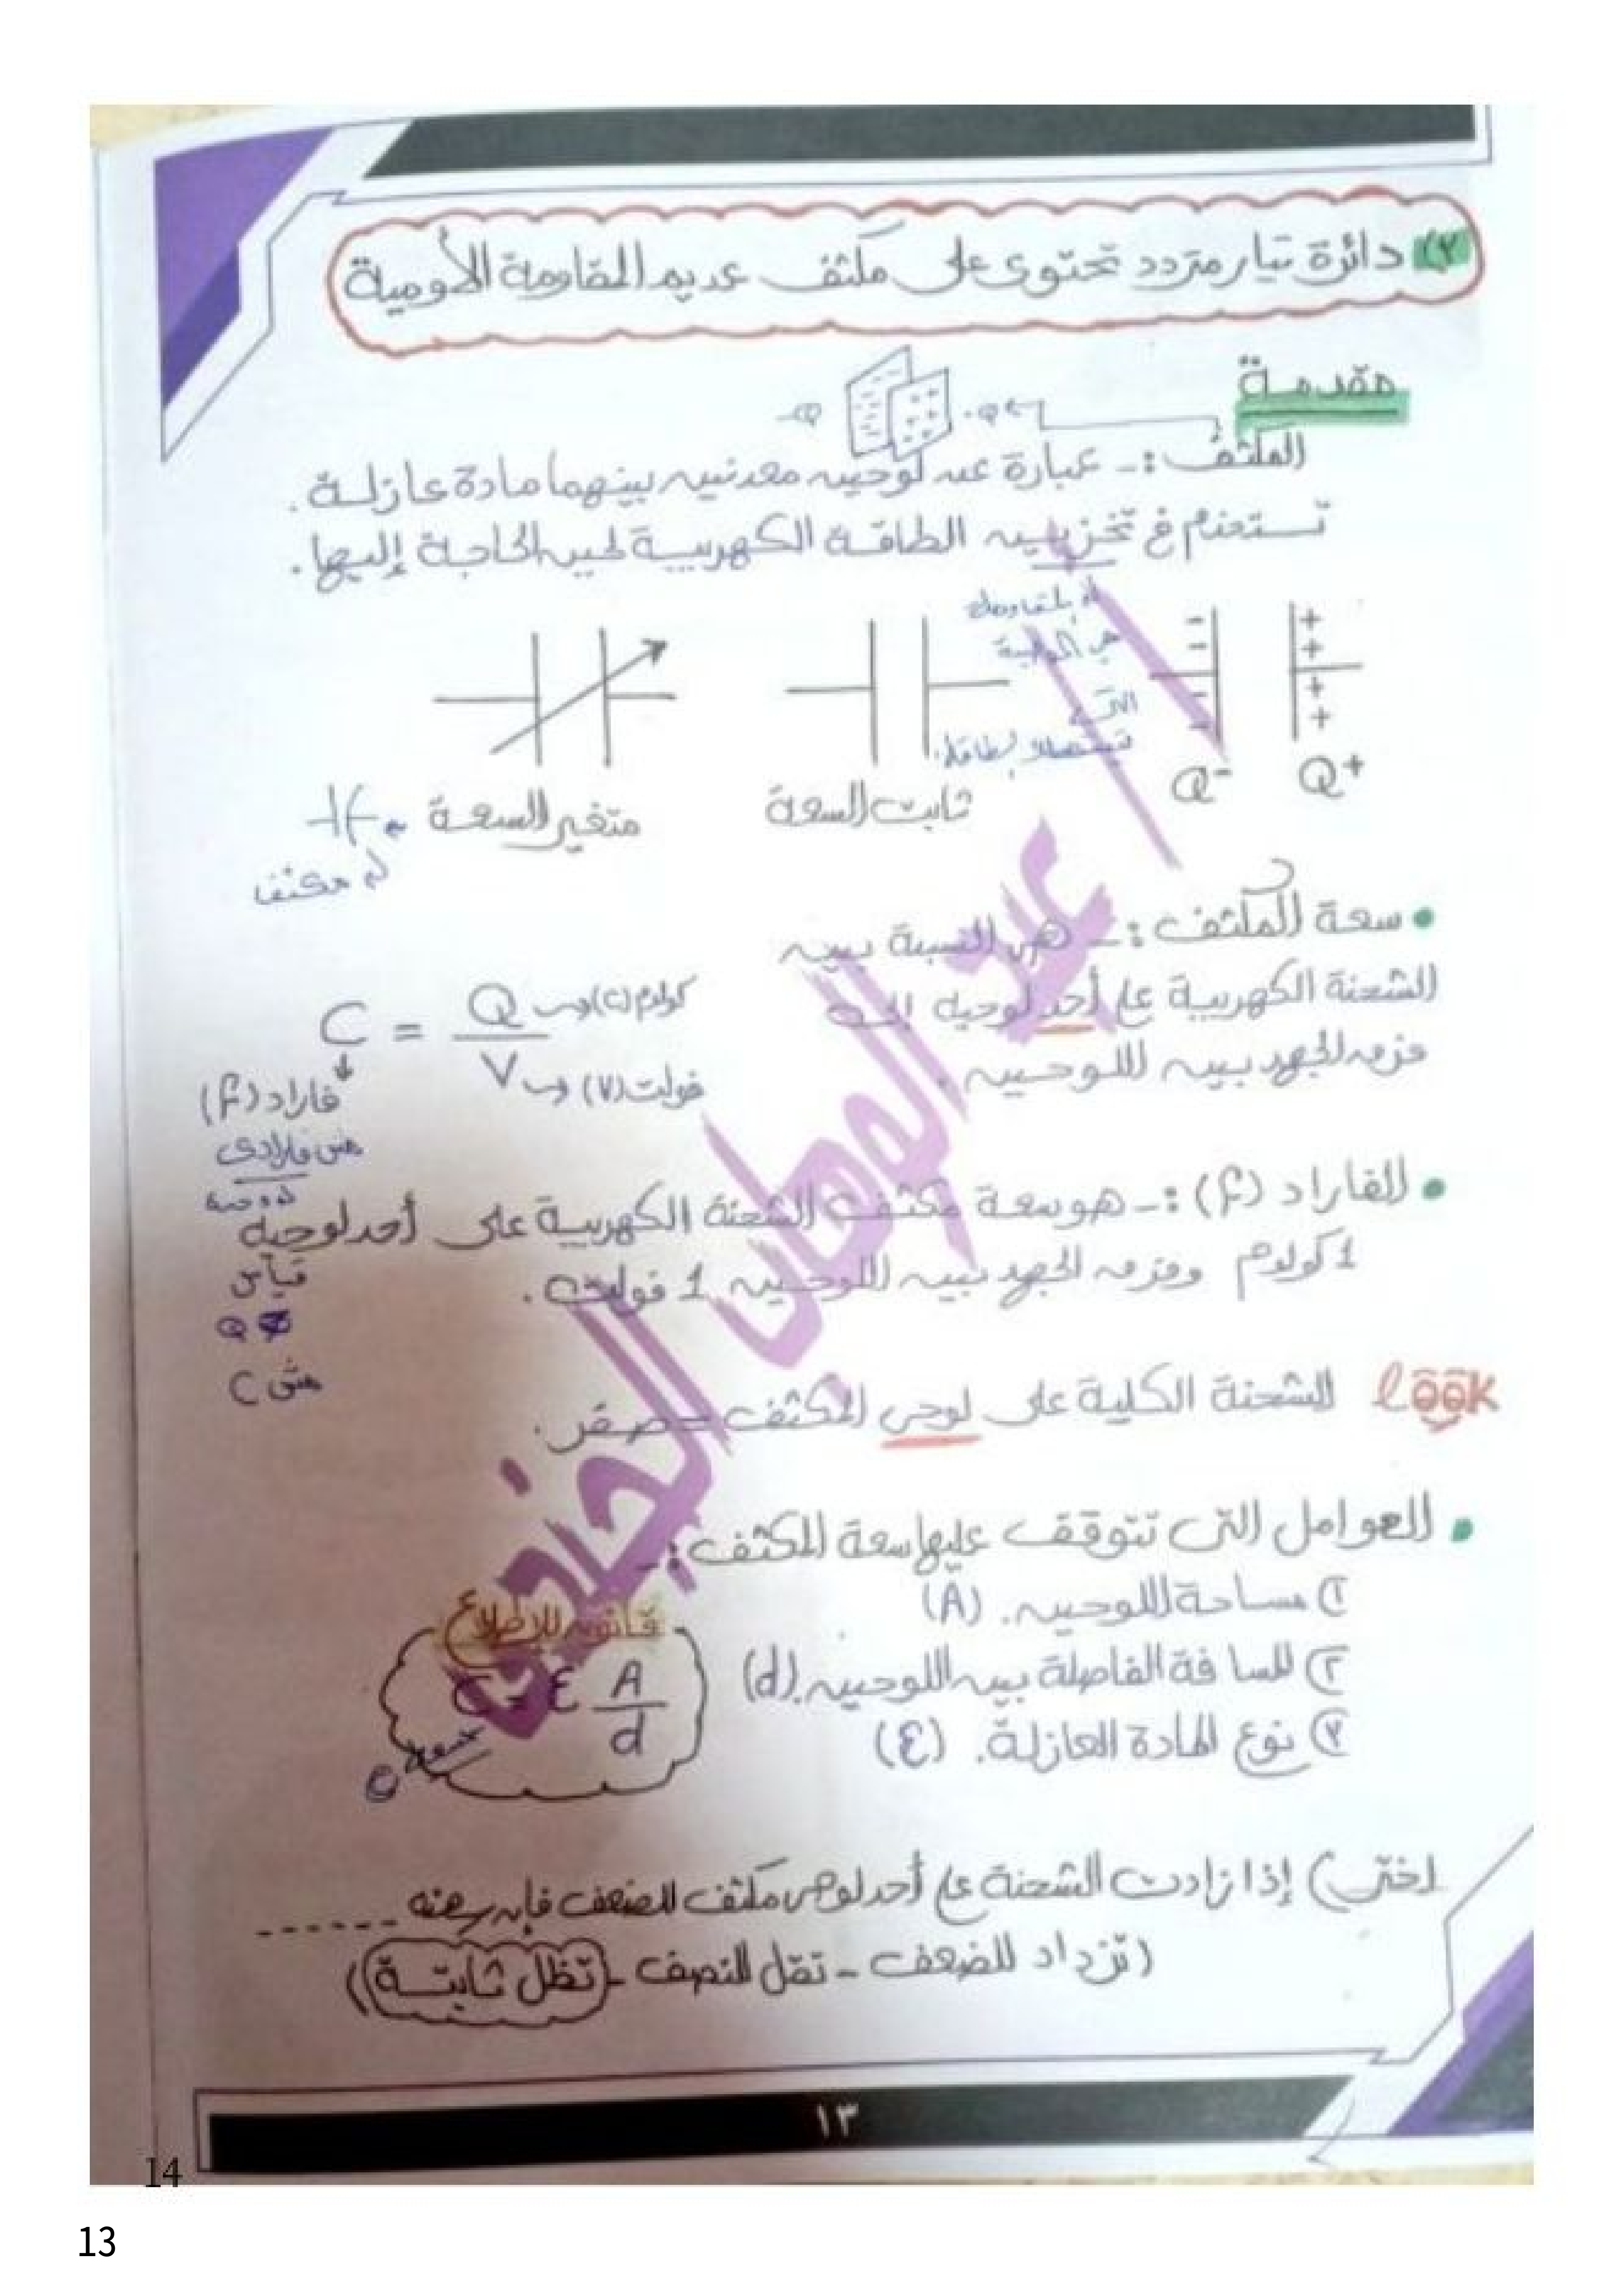 ٣) دائرة تيار متردد تحتوى على مكثف عديم المقاومة الأومية
مقدمة
-Q
+Q
المكثف :- عبارة عن لوحين معدنيين بينهما مادة عازلة .
تستخدم في تخزين الطاقة الكهربية لحين الحاجة إليها .
المقاومة
هي الوحيدة
التى
تستهلك طاقة.
Q-
Q+
ثابت السعة
متغير السعة
مكثف
• سعة المكثف :- هى النسبة بين
الشحنة الكهربية على أحد لوحيه إلى
فرق الجهد بين اللوحين .
C = Q / V
كولوم (C)
فولت (V)
فاراد (F)
مش فارادى
• الفاراد (F) :- هو سعة مكثف الشحنة الكهربية على أحد لوحيه
1 كولوم وفرق الجهد بين اللوحين 1 فولت .
وحدة
قياس
Q
مش C
look الشحنة الكلية على لوحى المكثف = صفر .
• العوامل التى تتوقف عليها سعة المكثف :-
١) مساحة اللوحين . (A)
٢) المسافة الفاصلة بين اللوحين . (d)
٣) نوع المادة العازلة . (ε)
قانون للإطلاع
C = ε A / d
سعة
اختر) إذا زادت الشحنة على أحد لوحى مكثف للضعف فإن سعته ------
(تزداد للضعف - تقل للنصف - تظل ثابتة)
١٣
14
13